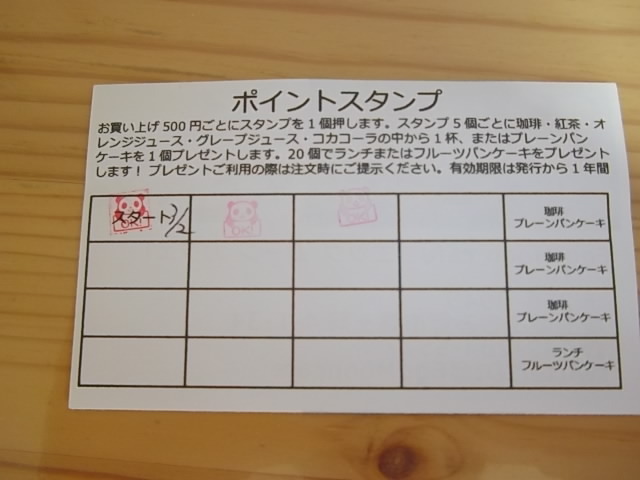 ポイントスタンプ
お買い上げ 500 円ごとにスタンプを 1 個押します。スタンプ 5 個ごとに珈琲・紅茶・オ
レンジジュース・グレープジュース・コカコーラの中から 1 杯、またはプレーンパン
ケーキを 1 個プレゼントします。20 個でランチまたはフルーツパンケーキをプレゼント
します！ プレゼントご利用の際は注文時にご提示ください。有効期限は発行から 1 年間
スタート
OK!
珈琲
プレーンパンケーキ
珈琲
プレーンパンケーキ
珈琲
プレーンパンケーキ
ランチ
フルーツパンケーキ